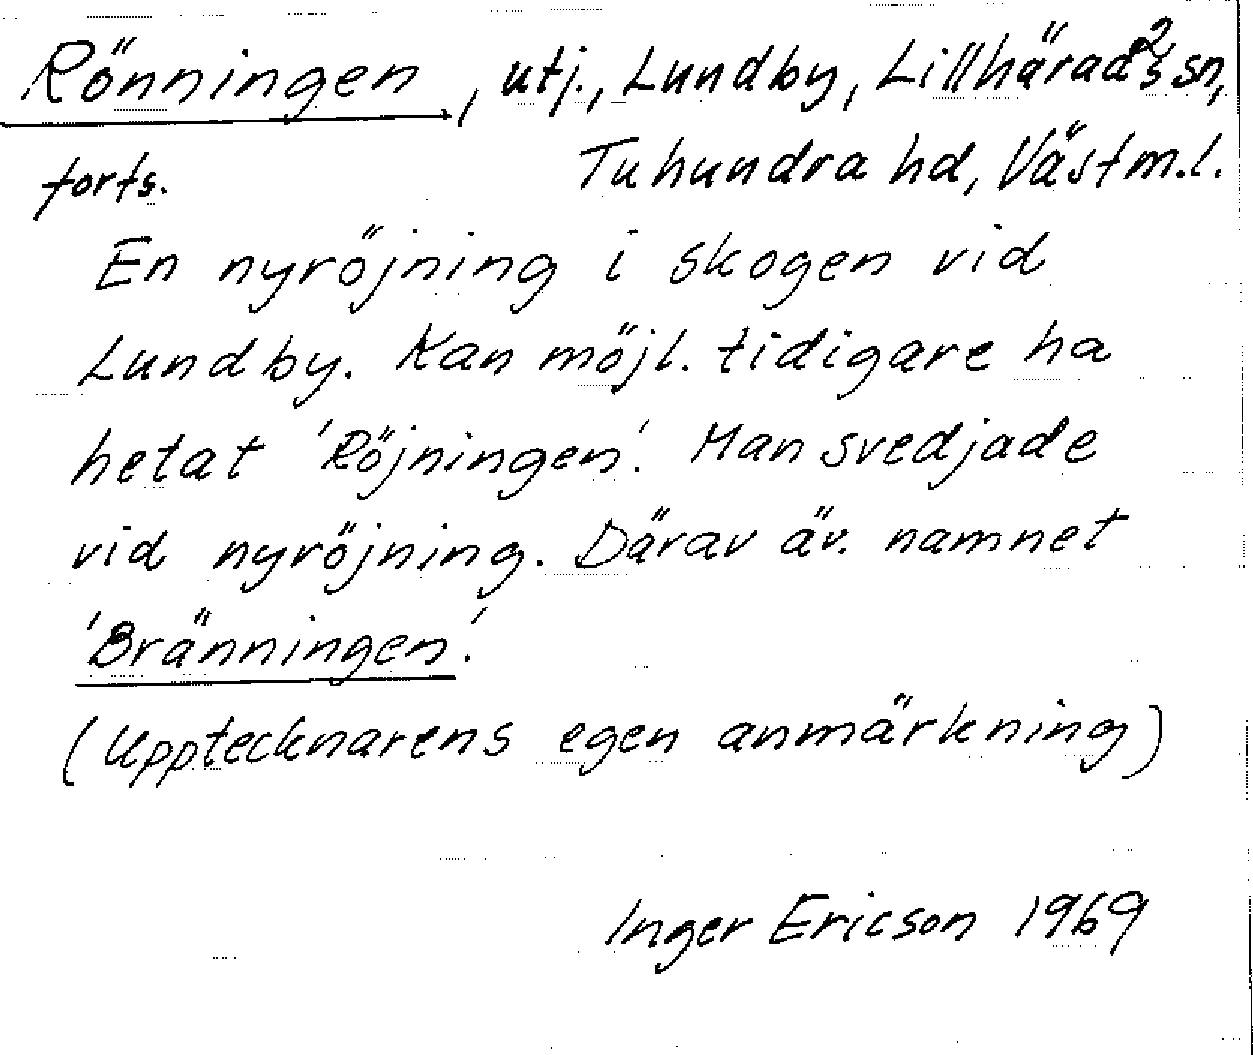 2
Rönningen, utj., Lundby, Lillhärads sn,
forts. Tuhundra hd, Västm.l.
En nyröjning i skogen vid
Lundby. Kan möjl. tidigare ha
hetat 'Röjningen'. Man svedjade
vid nyröjning. Därav äv. namnet
'Bränningen'.
(Upptecknarens egen anmärkning)
Inger Ericson 1969